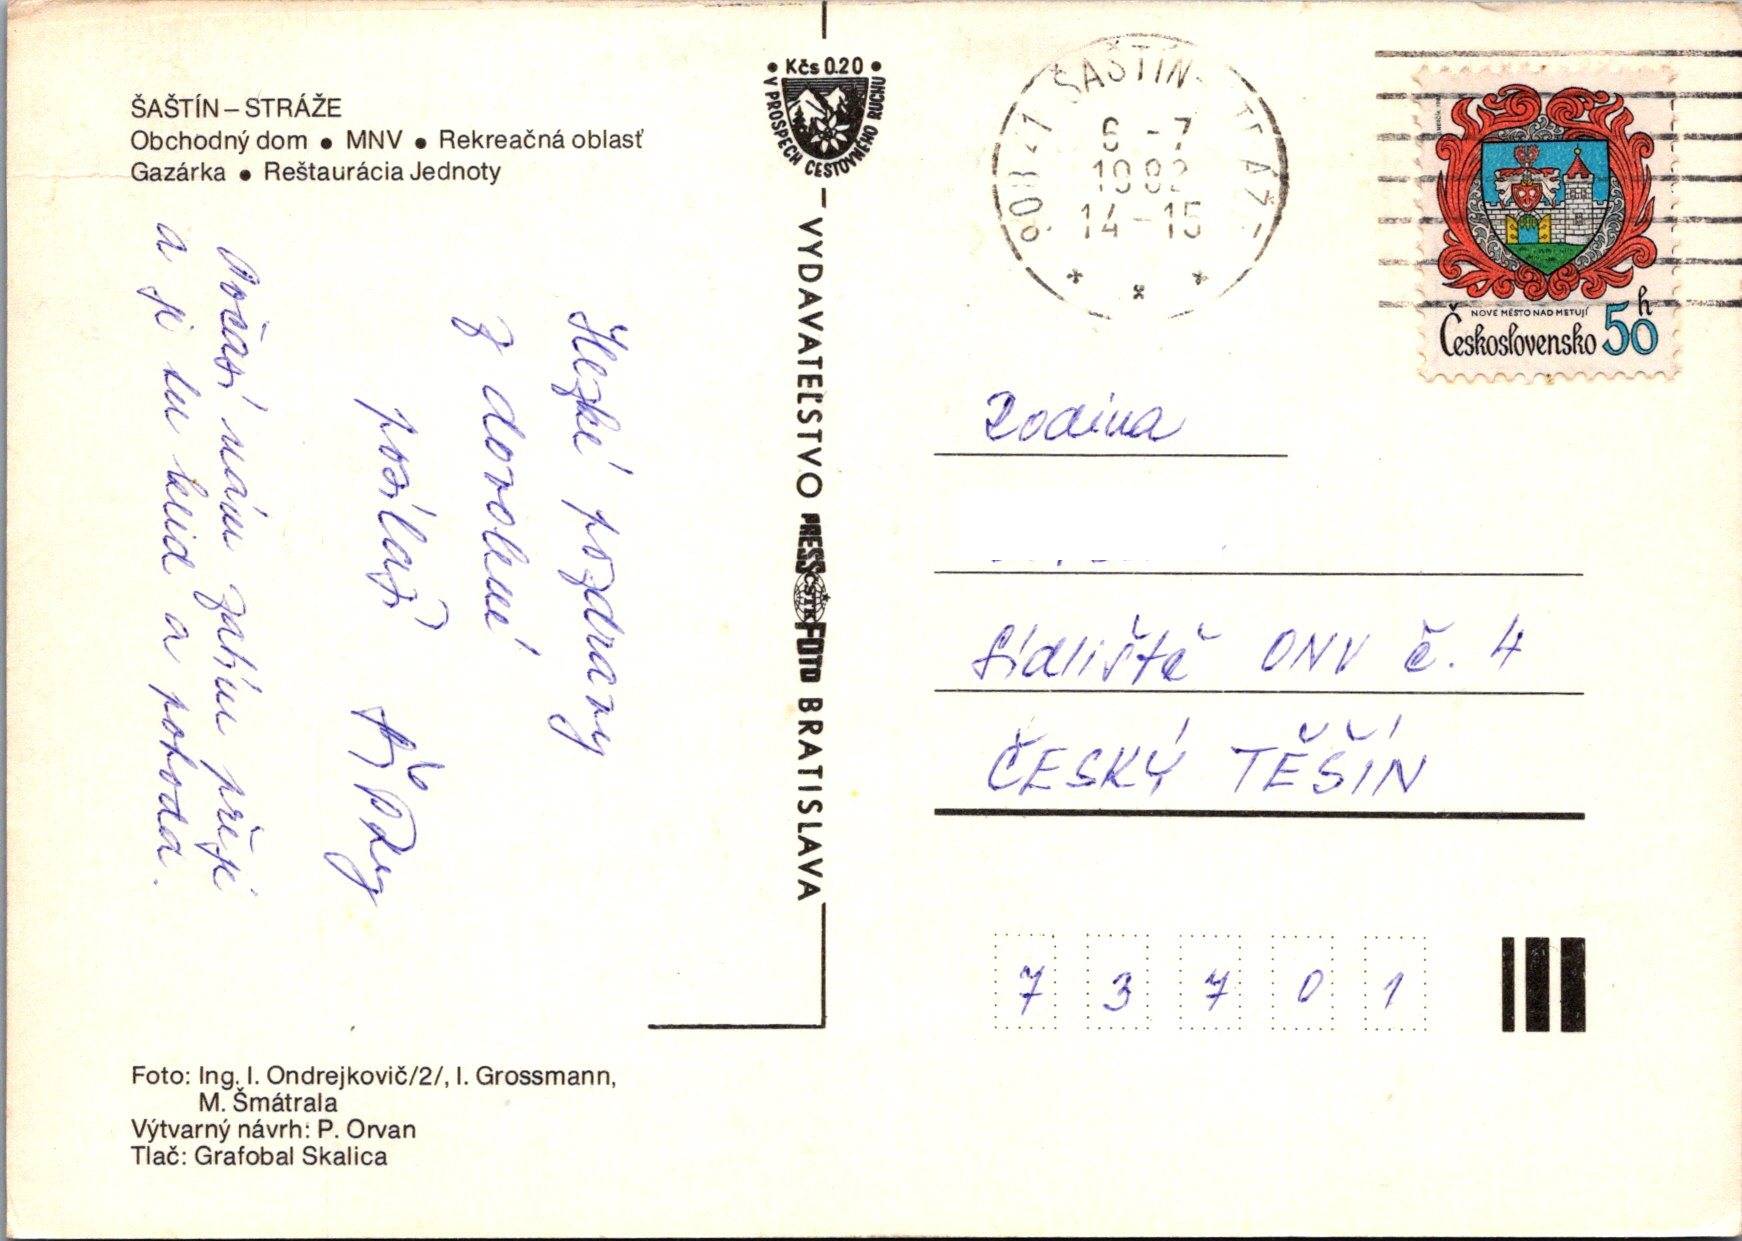 ŠAŠTÍN – STRÁŽE
Obchodný dom ● MNV ● Rekreačná oblasť
Gazárka ● Reštaurácia Jednoty
Hezké pozdravy
z dovolené
posílají
Počasí nám zatím přeje
a je tu klid a pohoda.
Foto: Ing. I. Ondrejkovič/2/, I. Grossmann,
M. Šmátrala
Výtvarný návrh: P. Orvan
Tlač: Grafobal Skalica
Kčs 0.20
V PROSPECH CESTOVNÉHO RUCHU
VYDAVATEĽSTVO PRESSFOTO BRATISLAVA
ČSTK
ŠAŠTÍN
6 -7
1982
14-15
NOVÉ MĚSTO NAD METUJÍ
Československo 50h
Rodina
Sídliště ONV č. 4
ČESKÝ TĚŠÍN
7 3 7 0 1